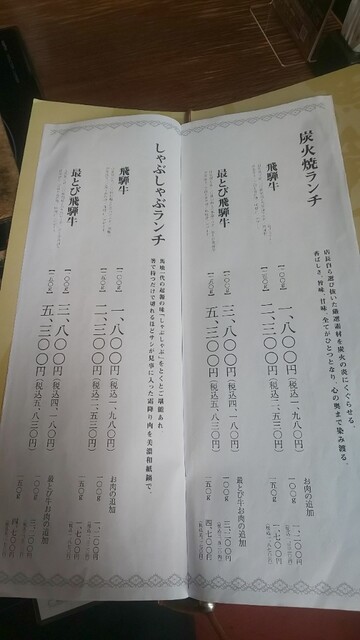 炭火焼ランチ
店長自ら選び抜いた厳選素材を炭火の炎にくぐらせる。
香ばしさ、旨味、甘味、全てがひとつとなり、心の奥まで染み渡る。
飛騨牛
【一〇〇g】 一、八〇〇円(税込一、九八〇円)
【一五〇g】 二、三〇〇円(税込二、五三〇円)
最とび飛騨牛
【一〇〇g】 三、八〇〇円(税込四、一八〇円)
【一五〇g】 五、三〇〇円(税込五、八三〇円)
お肉の追加
一〇〇g 一、二〇〇円
一五〇g 一、七〇〇円
最とび牛お肉の追加
一〇〇g 三、二〇〇円
一五〇g 四、七〇〇円
しゃぶしゃぶランチ
箸で持つだけで切れるほどサシが見事に入った霜降り肉を美濃和紙鍋で
飛騨牛
【一〇〇g】 一、八〇〇円(税込一、九八〇円)
【一五〇g】 二、三〇〇円(税込二、五三〇円)
最とび飛騨牛
【一〇〇g】 三、八〇〇円(税込四、一八〇円)
【一五〇g】 五、三〇〇円(税込五、八三〇円)
お肉の追加
一〇〇g 一、二〇〇円
一五〇g 一、七〇〇円
最とび牛お肉の追加
一〇〇g 三、二〇〇円
一五〇g 四、七〇〇円